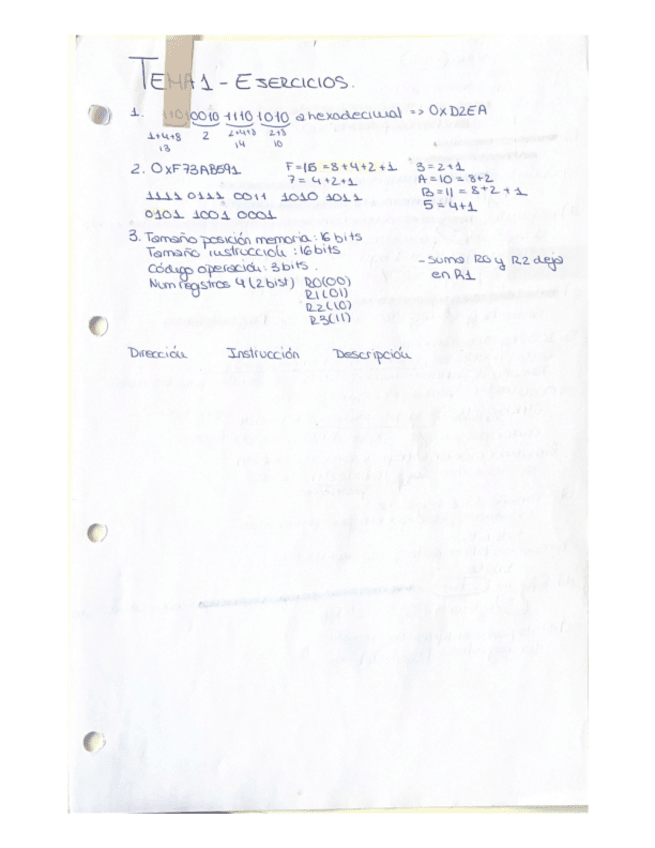 TEMA 1 - EJERCICIOS.
1. 11010010 1110 1010 a hexadecimal => 0xD2EA
1+4+8 2 2+4+8 2+8
13 14 10
2. 0xF73AB591 F=15=8+4+2+1 3=2+1
7=4+2+1 A=10=8+2
1111 0111 0011 1010 1011 B=11=8+2+1
0101 1001 0001 5=4+1
3. Tamaño posición memoria: 16 bits
Tamaño instrucción: 16 bits - Suma R0 y R2 deja
Código operación: 3 bits. en R1
Num registros 4 (2 bist) R0(00)
R1(01)
R2(10)
R3(11)
Dirección Instrucción Descripción